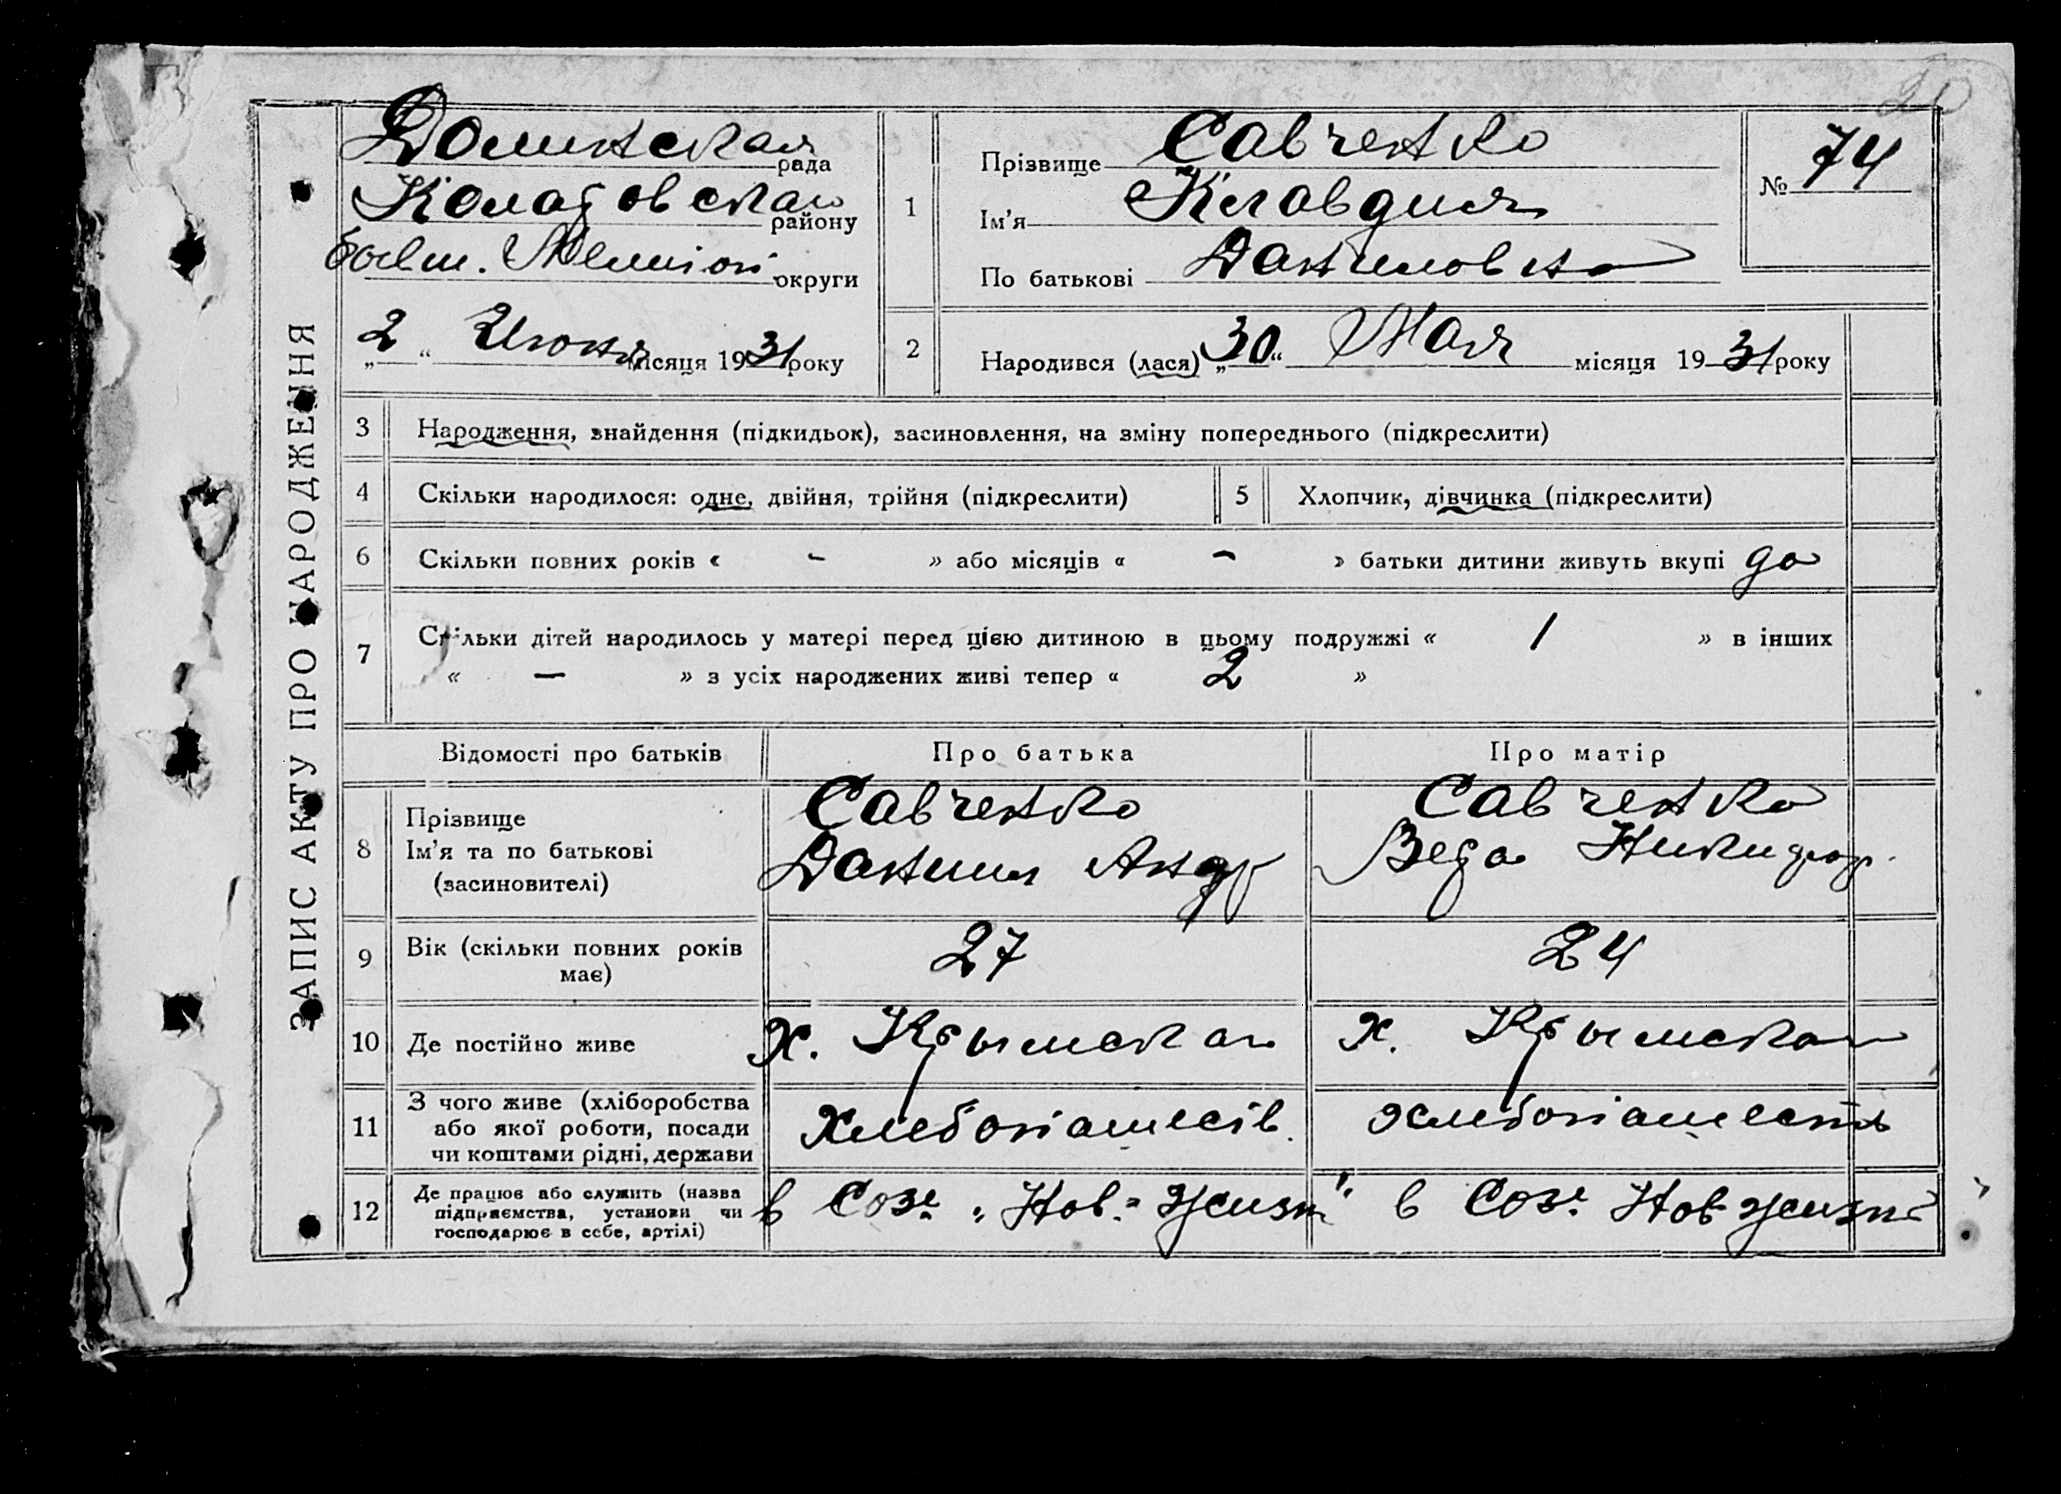 ЗАПИС АКТУ ПРО НАРОДЖЕННЯ
Долинская рада
района
округи
„2“ Июня місяця 1931 року
1
Прізвище Савченко
Ім'я Клавдия
По батькові Даниловна
№ 74
2
Народився (лася) „30“ Мая місяця 1931 року
3 Народження, знайдення (підкидьок), засиновлення, на зміну попереднього (підкреслити)
4 Скільки народилося: одне, двійня, трійня (підкреслити)
5 Хлопчик, дівчинка (підкреслити)
6 Скільки повних років « - » або місяців « - » батьки дитини живуть вкупі да
7 Скільки дітей народилось у матері перед цією дитиною в цьому подружжі « 1 » в інших
« — » з усіх народжених живі тепер « 2 »
Відомості про батьків Про батька Про матір
8
Прізвище
Ім'я та по батькові
(засиновителі)
Савченко
Даниил Андр
Савченко
Вера Никифор.
9 Вік (скільки повних років
має)
27 24
10 Де постійно живе х. Крымская х. Крымская
11 З чого живе (хліборобства
або якої роботи, посади
чи коштами рідні, держави
Хлебопашеств. хлебопашеств
12 Де працює або служить (назва
підприємства, установи чи
господарює в себе, артілі)
в Созе „Нов. Жизн“ в Созе Нов Жизнь